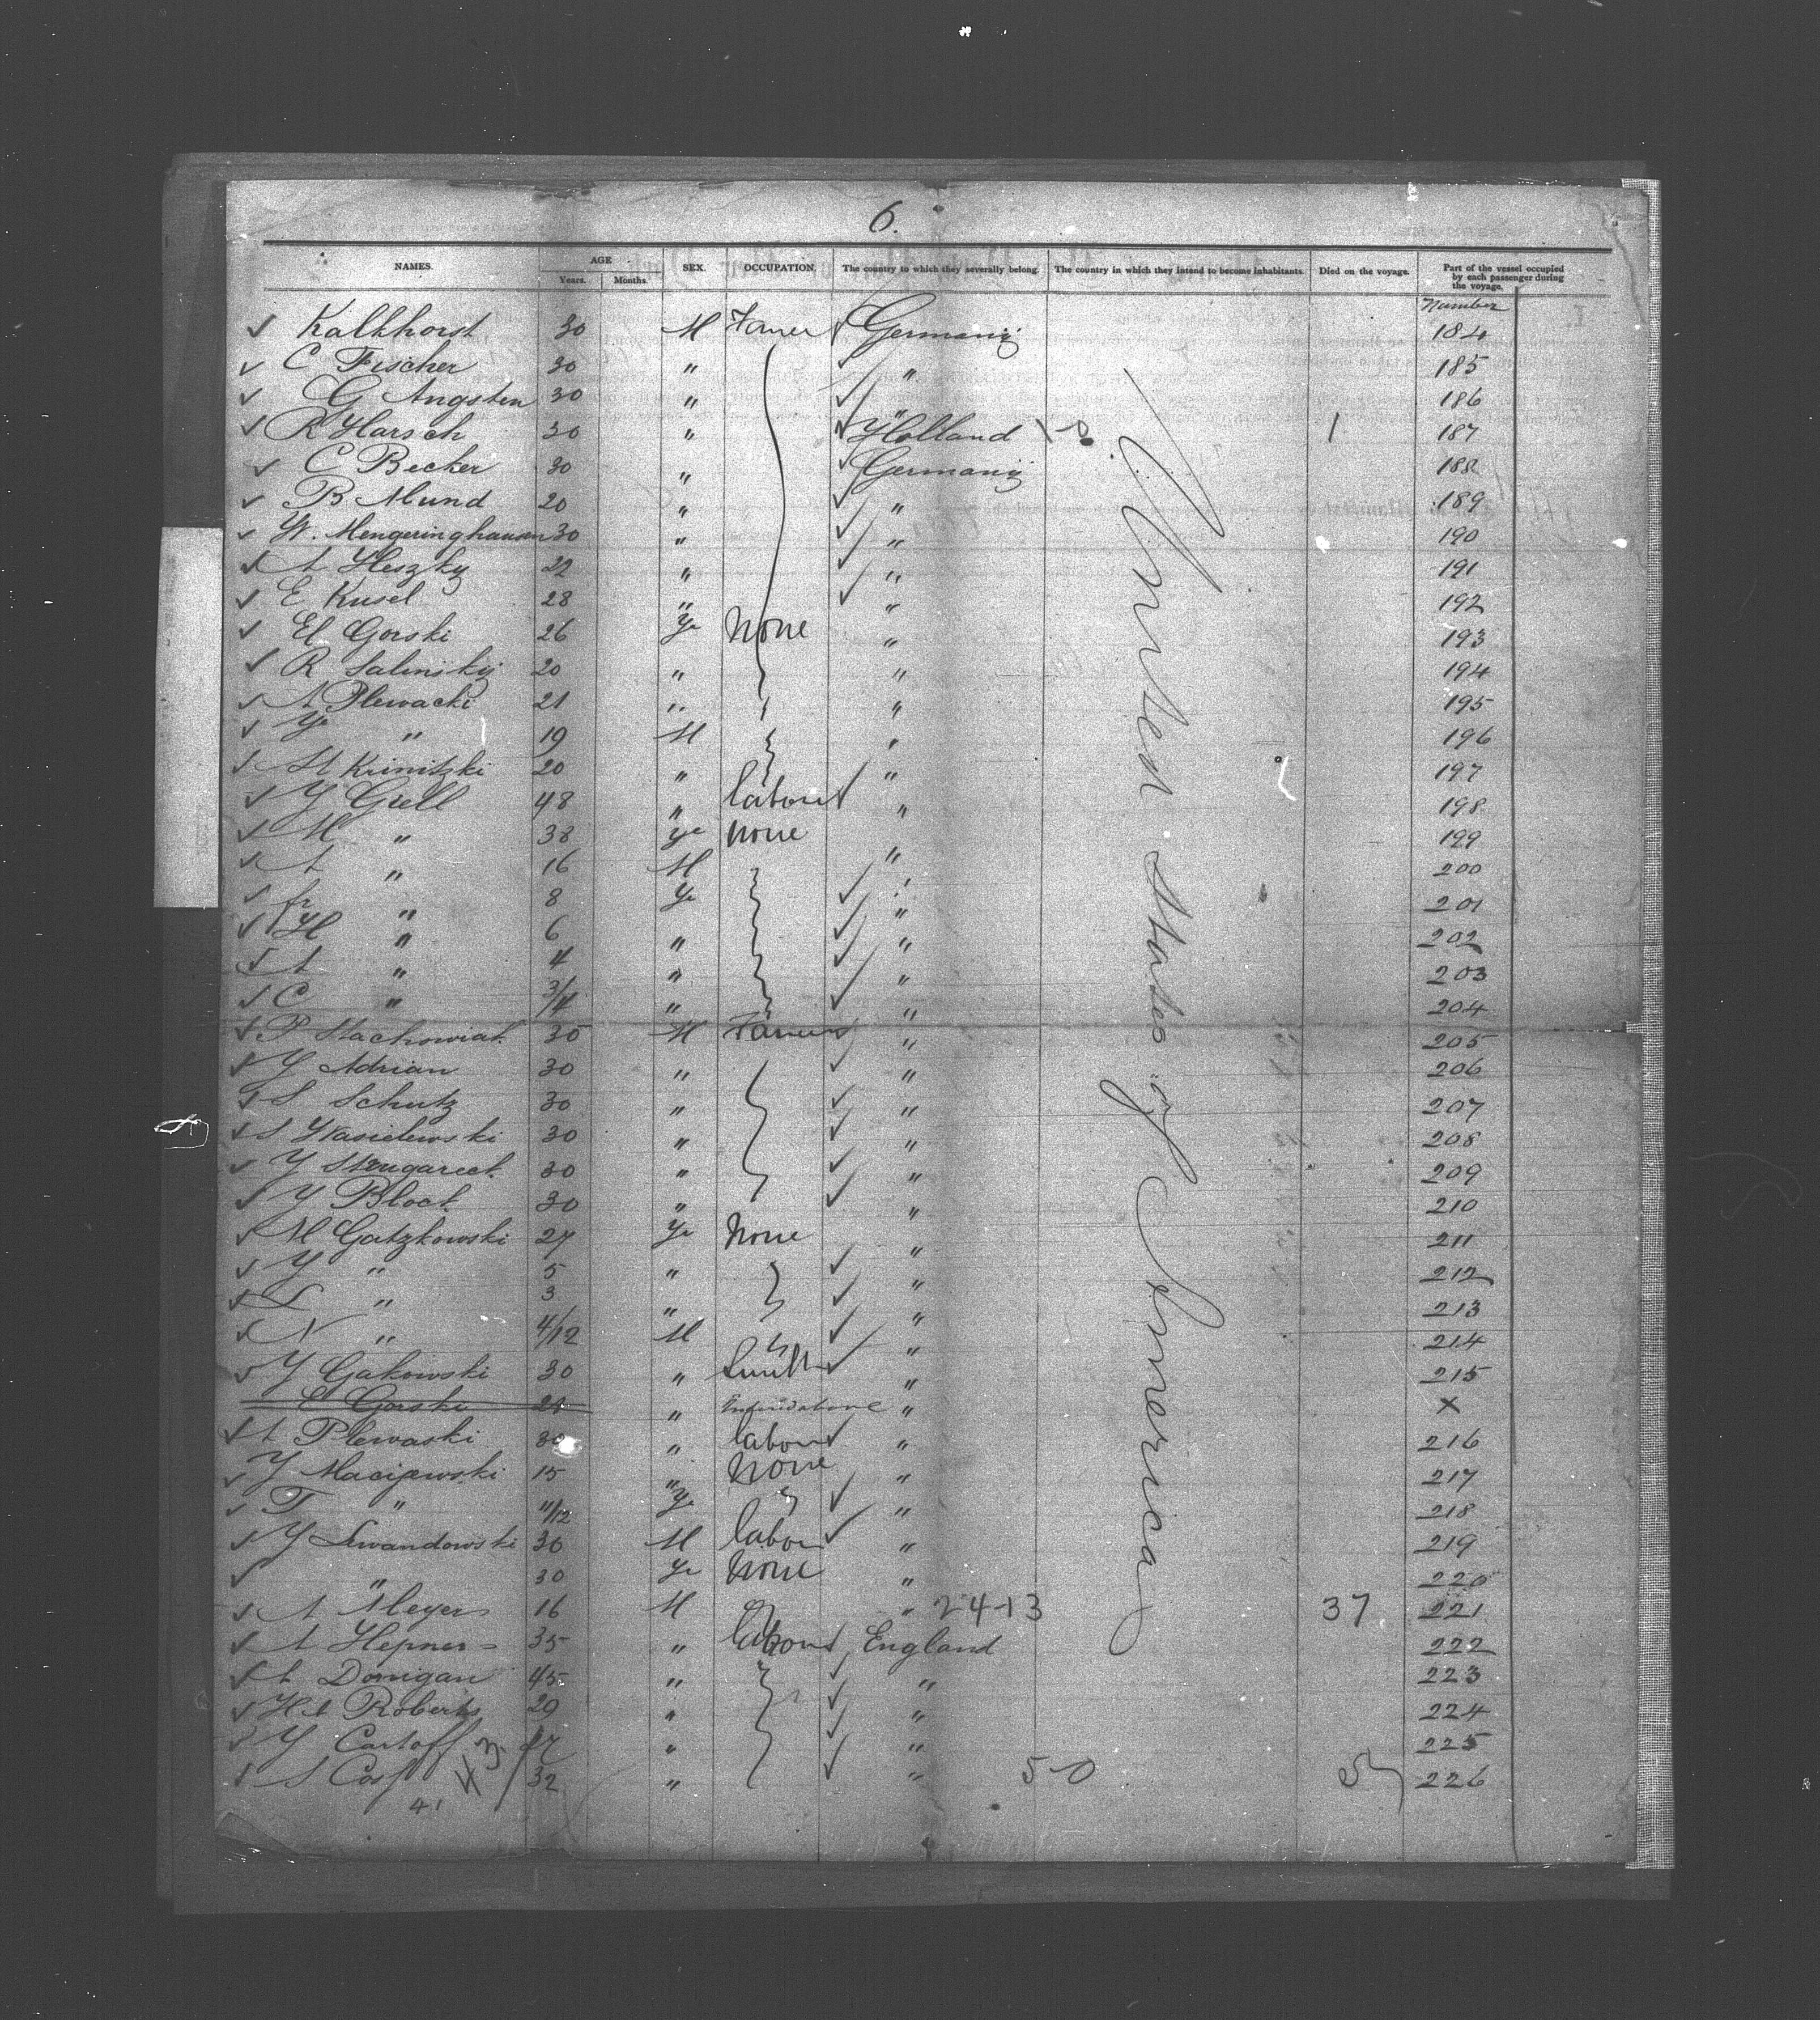 6.
NAMES. AGE Years. Months. SEX. OCCUPATION. The country to which they severally belong. The country in which they intend to become inhabitants. Died on the voyage. Part of the vessel occupied by each passenger during the voyage.
Number
Kalkhorst 30 M Farmer Germany 184
C Fischer 30 " " 185
G Angsten 30 " " 186
R Harsch 30 " Holland 1 187
C Becker 30 " Germany 188
B Mund 20 " " 189
W. Mengeringhausen 30 " " 190
A Heszky 22 " " 191
E Kusel 28 " " 192
El Gorski 26 Fe None " 193
R Salinsky 20 " " 194
A Plewacki 21 " " 195
Fr " 19 M " 196
M Krinitzki 20 " " 197
J Grell 48 " labour " 198
M " 38 Fe None " 199
A " 16 M " 200
fr " 8 Fe " 201
H " 6 " " 202
A " 4 " " 203
C " 3/4 " " 204
P Stachowiak 30 M Farmers " 205
J Adrian 30 " " 206
S Schutz 30 " " 207
S Wasielewski 30 " " 208
J 30 " " 209
J Block 30 " " 210
M Gatzkowski 27 Fe None " 211
J " 5 " " 212
L " 3 " " 213
N " 4/12 M " 214
J Gakowski 30 " Smith " 215
E Gorski 24 " " X
A Plewaski 30 " labour " 216
J Macijewski 15 " None " 217
T " 11/12 Fe " 218
J Lewandowski 30 M labour " 219
" 30 Fe None " 220
A Meyer 16 M " 24-13 37 221
A Hepner 35 " labour England 222
A Donigan 45 " " 223
Hd Roberts 29 " " 224
J Castoff " " 225
S 32 " " 5-0 226
43
41
United States of America